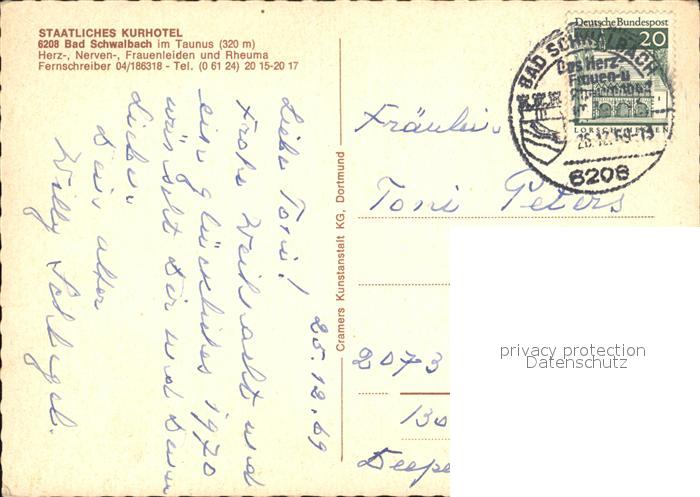 STAATLICHES KURHOTEL
6208 Bad Schwalbach im Taunus (320 m)
Herz-, Nerven-, Frauenleiden und Rheuma
Fernschreiber 04/186318 - Tel. (0 61 24) 20 15-20 17
25.12.69
Liebe Toni!
Frohe Weihnacht und
ein glückliches 1970
wünscht Dir und Deinen
Lieben
Dein alter
Willy
Cramers Kunstanstalt KG, Dortmund
Deutsche Bundespost
20
LORSCH HESSEN
BAD SCHWALBACH
Das Herz-
Frauen-u
6208
Fräulein
Toni Peters
2073
privacy protection
Datenschutz